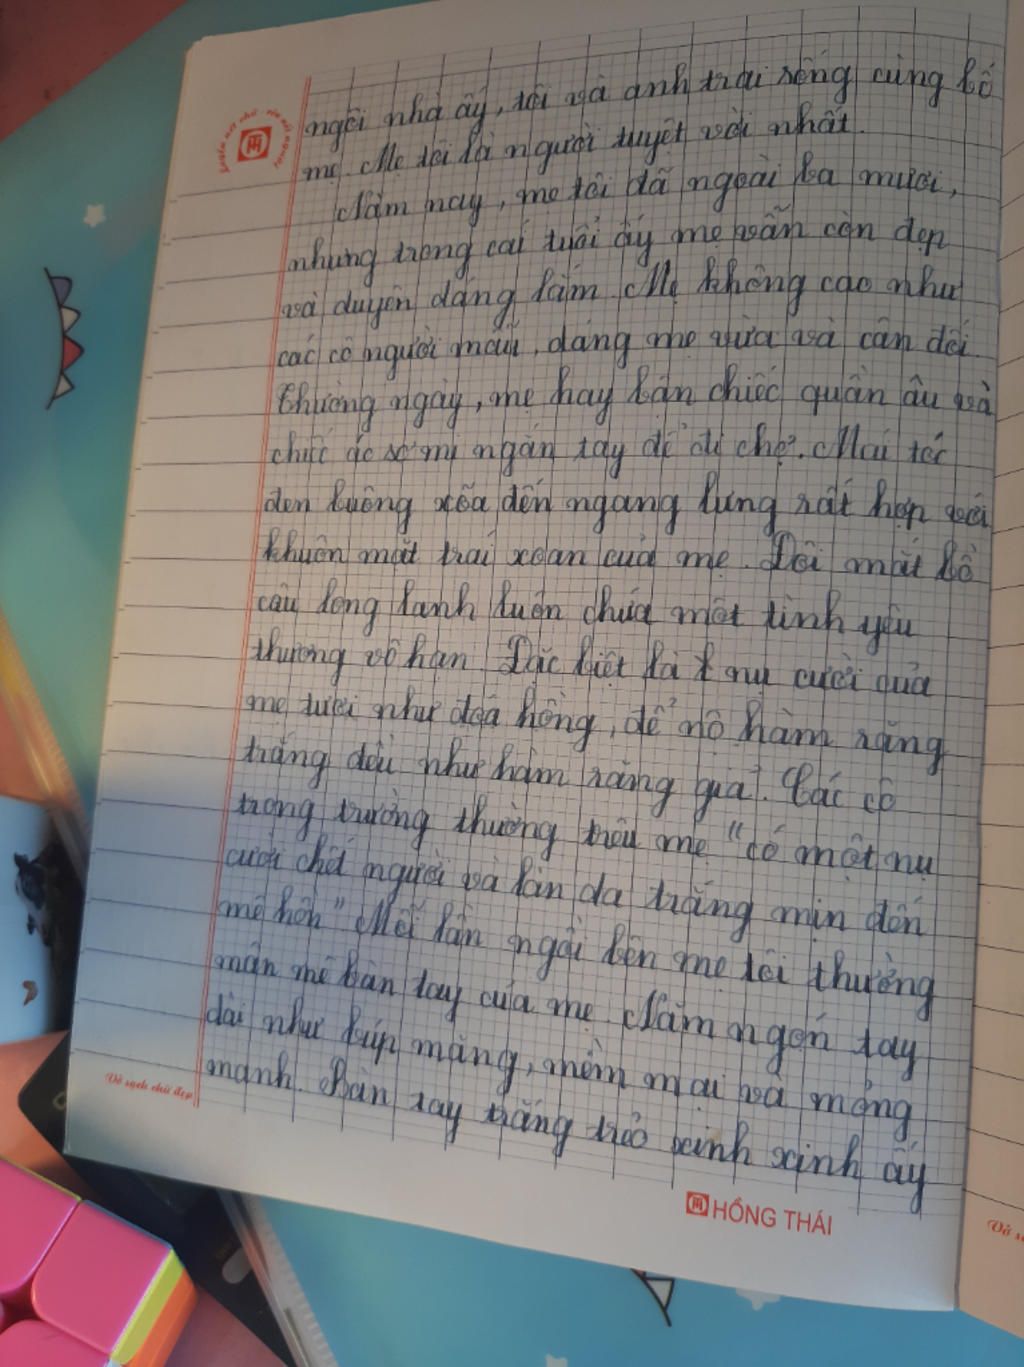 ngôi nhà ấy, tôi và anh trai sống cùng bố
mẹ. Mẹ tôi là người tuyệt vời nhất.
Năm nay, mẹ tôi đã ngoài ba mươi,
nhưng trong cái tuổi ấy mẹ vẫn còn đẹp
và duyên dáng lắm. Mẹ không cao như
các cô người mẫu, dáng mẹ vừa và cân đối.
Thường ngày, mẹ hay bận chiếc quần âu và
chiếc áo sơ mi ngắn tay để đi chợ. Mái tóc
đen buông xõa đến ngang lưng rất hợp với
khuôn mặt trái xoan của mẹ. Đôi mắt bồ
câu long lanh luôn chứa một tình yêu
thương vô hạn. Đặc biệt là nụ cười của
mẹ tươi như đoá hồng, để nộ hàm răng
trắng đều như hàm răng giả. Các cô
trong trường thường trêu mẹ "có một nụ
cười chết người và làn da trắng mịn đến
mê hồn" Mỗi lần ngồi bên mẹ tôi thường
mân mê bàn tay của mẹ. Năm ngón tay
dài như búp măng, mềm mại và mỏng
manh. Bàn tay trắng trẻo xinh xinh ấy
Vở sạch chữ đẹp
HỒNG THÁI